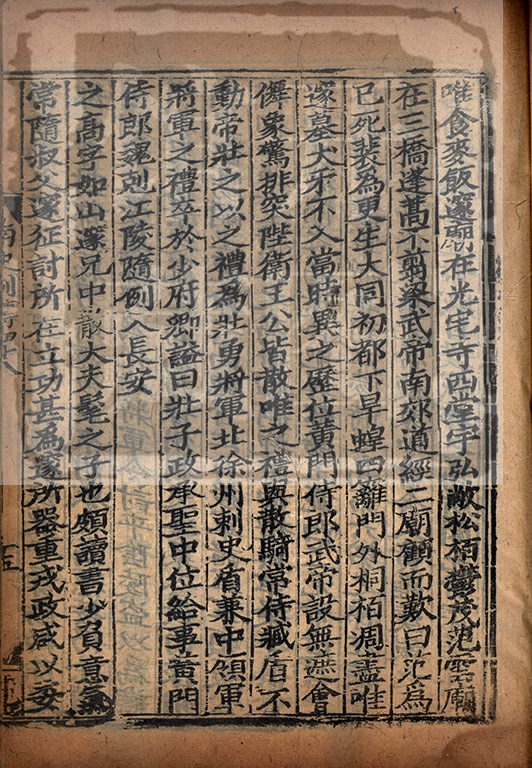 唯食麥飯邃廟在光宅寺西堂宇弘敞松栢鬱茂范雲廟
在三橋蓬蒿不翦梁武帝南郊道經二廟顧而歎曰范為
已死裴為更生大同初都下旱蝗四籬門外桐栢凋盡唯
邃墓犬牙不入當時異之歷位黃門侍郎武帝設無遮會
儛象驚排突陛衛王公皆散唯之禮與散騎常侍臧盾不
動帝壯之以之禮為壯勇將軍北徐州刺史盾兼中領軍
將軍之禮卒於少府卿謚曰壯子政承聖中位給事黃門
侍郎魏剋江陵隨例入長安
之高字如山邃兄中散大夫髦之子也頗讀書少負意氣
常隨叔父邃征討所在立功甚為邃所器重戎政咸以委